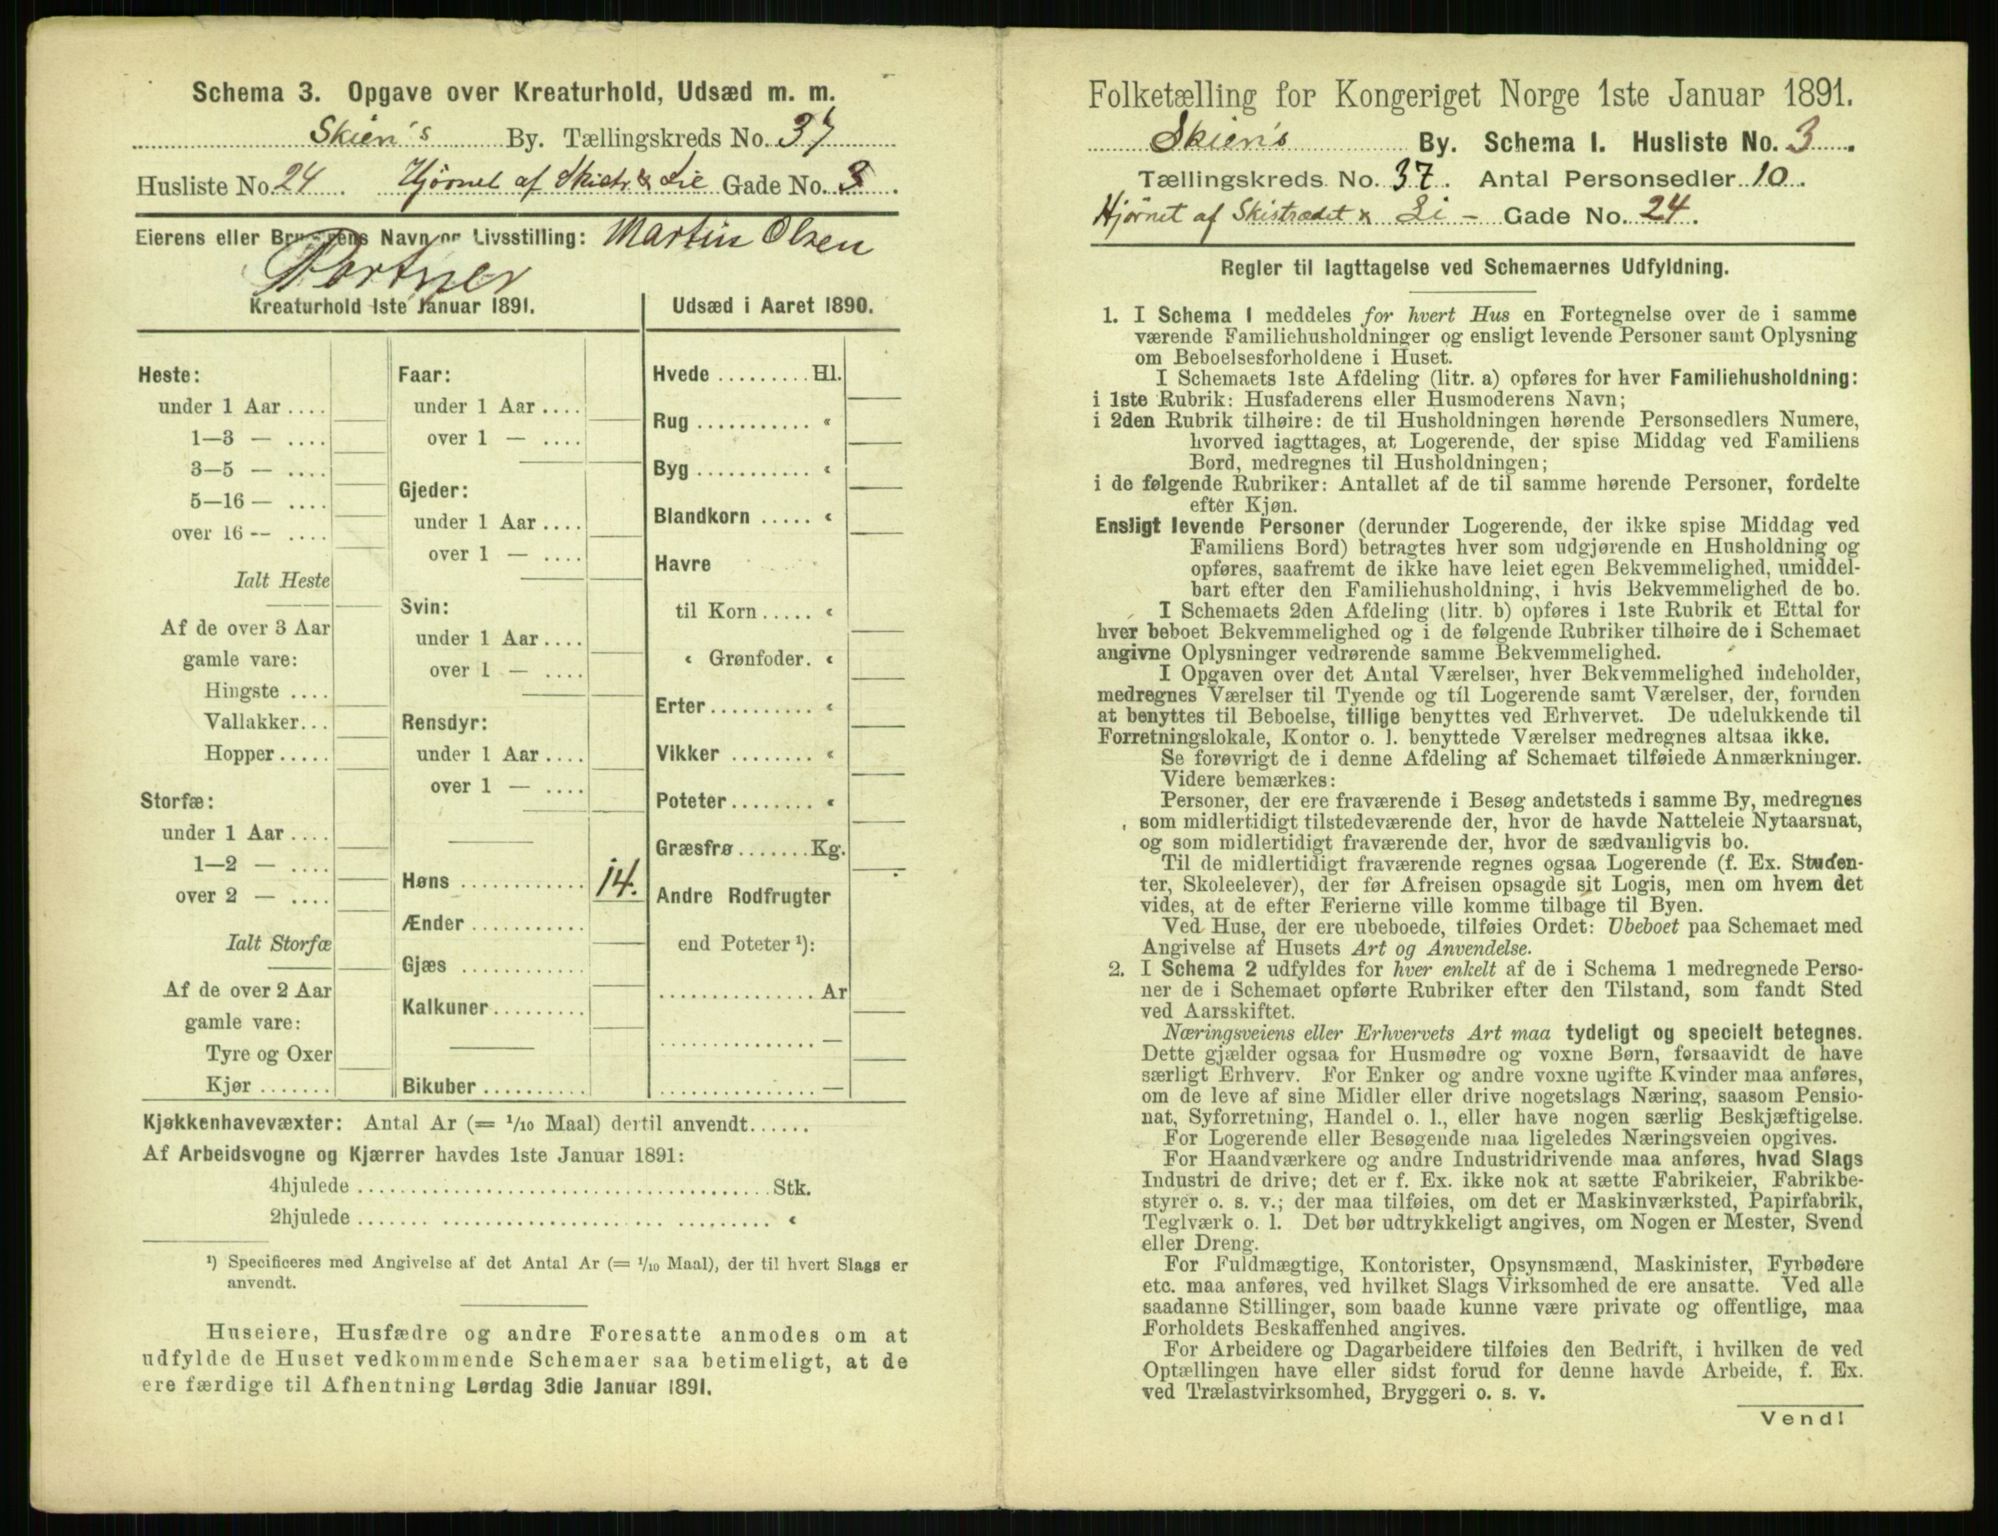 Schema 3. Opgave over Kreaturhold, Udsæd m. m.
Skien's By. Tællingskreds No. 37
Husliste No 24. Hjørnet af Skistr & Lie Gade No. 3.
Eierens eller Brugerens Navn og Livsstilling: Martin Olsen
Portner
Kreaturhold 1ste Januar 1891.
Heste:
under 1 Aar ....
1—3 — ....
3—5 — ....
5—16 — ....
over 16 -- ....
Ialt Heste
Af de over 3 Aar
gamle vare:
Hingste ....
Vallakker...
Hopper.....
Storfæ:
under 1 Aar ....
1—2 — ....
over 2 — ....
Ialt Storfæ
Af de over 2 Aar
gamle vare:
Tyre og Oxer
Kjør .......
Faar:
under 1 Aar ....
over 1 — ....
Gjeder:
under 1 Aar ....
over 1 — ....
Svin:
under 1 Aar....
over 1 — ....
Rensdyr:
under 1 Aar ....
over 1 — ....
Høns ............ 14.
Ænder ...........
Gjæs ............
Kalkuner.........
Bikuber ..........
Udsæd i Aaret 1890.
Hvede ......... Hl.
Rug ........... «
Byg ........... «
Blandkorn ..... «
Havre
til Korn ..... «
« Grønfoder. «
Erter.......... «
Vikker ........ «
Poteter........ «
Græsfrø ....... Kg.
Andre Rodfrugter
end Poteter ¹):
............... Ar
............... —
............... —
Kjøkkenhavevæxter: Antal Ar (= 1/10 Maal) dertil anvendt......
Af Arbeidsvogne og Kjærrer havdes 1ste Januar 1891:
4hjulede ........................................ Stk.
2hjulede ........................................ «
¹) Specificeres med Angivelse af det Antal Ar (= 1/10 Maal), der til hvert Slags er
anvendt.
Huseiere, Husfædre og andre Foresatte anmodes om at
udfylde de Huset vedkommende Schemaer saa betimeligt, at de
ere færdige til Afhentning Lørdag 3die Januar 1891.
Folketælling for Kongeriget Norge 1ste Januar 1891.
Skien's By. Schema I. Husliste No. 3.
Tællingskreds No. 37. Antal Personsedler 10.
Hjørnet af Skistrædet & Li - Gade No. 24.
Regler til Iagttagelse ved Schemaernes Udfyldning.
1. I Schema 1 meddeles for hvert Hus en Fortegnelse over de i samme
værende Familiehusholdninger og ensligt levende Personer samt Oplysning
om Beboelsesforholdene i Huset.
I Schemaets 1ste Afdeling (litr. a) opføres for hver Familiehusholdning:
i 1ste Rubrik: Husfaderens eller Husmoderens Navn;
i 2den Rubrik tilhøire: de til Husholdningen hørende Personsedlers Numere,
hvorved iagttages, at Logerende, der spise Middag ved Familiens
Bord, medregnes til Husholdningen;
i de følgende Rubriker: Antallet af de til samme hørende Personer, fordelte
efter Kjøn.
Ensligt levende Personer (derunder Logerende, der ikke spise Middag ved
Familiens Bord) betragtes hver som udgjørende en Husholdning og
opføres, saafremt de ikke have leiet egen Bekvemmelighed, umiddel-
bart efter den Familiehusholdning, i hvis Bekvemmelighed de bo.
I Schemaets 2den Afdeling (litr. b) opføres i 1ste Rubrik et Ettal for
hver beboet Bekvemmelighed og i de følgende Rubriker tilhøire de i Schemaet
angivne Oplysninger vedrørende samme Bekvemmelighed.
I Opgaven over det Antal Værelser, hver Bekvemmelighed indeholder,
medregnes Værelser til Tyende og til Logerende samt Værelser, der, foruden
at benyttes til Beboelse, tillige benyttes ved Erhvervet. De udelukkende til
Forretningslokale, Kontor o. l. benyttede Værelser medregnes altsaa ikke.
Se forøvrigt de i denne Afdeling af Schemaet tilføiede Anmærkninger.
Videre bemærkes:
Personer, der ere fraværende i Besøg andetsteds i samme By, medregnes
som midlertidigt tilstedeværende der, hvor de havde Natteleie Nytaarsnat,
og som midlertidigt fraværende der, hvor de sædvanligvis bo.
Til de midlertidigt fraværende regnes ogsaa Logerende (f. Ex. Studen-
ter, Skoleelever), der før Afreisen opsagde sit Logis, men om hvem det
vides, at de efter Ferierne ville komme tilbage til Byen.
Ved Huse, der ere ubeboede, tilføies Ordet: Ubeboet paa Schemaet med
Angivelse af Husets Art og Anvendelse.
2. I Schema 2 udfyldes for hver enkelt af de i Schema 1 medregnede Perso-
ner de i Schemaet opførte Rubriker efter den Tilstand, som fandt Sted
ved Aarsskiftet.
Næringsveiens eller Erhvervets Art maa tydeligt og specielt betegnes.
Dette gjælder ogsaa for Husmødre og voxne Børn, forsaavidt de have
særligt Erhverv. For Enker og andre voxne ugifte Kvinder maa anføres,
om de leve af sine Midler eller drive nogetslags Næring, saasom Pensio-
nat, Syforretning, Handel o. l., eller have nogen særlig Beskjæftigelse.
For Logerende eller Besøgende maa ligeledes Næringsveien opgives.
For Haandværkere og andre Industridrivende maa anføres, hvad Slags
Industri de drive; det er f. Ex. ikke nok at sætte Fabrikeier, Fabrikbe-
styrer o. s. v.; der maa tilføies, om det er Maskinværksted, Papirfabrik,
Teglværk o. l. Det bør udtrykkeligt angives, om Nogen er Mester, Svend
eller Dreng.
For Fuldmægtige, Kontorister, Opsynsmænd, Maskinister, Fyrbødere
etc. maa anføres, ved hvilket Slags Virksomhed de ere ansatte. Ved alle
saadanne Stillinger, som baade kunne være private og offentlige, maa
Forholdets Beskaffenhed angives.
For Arbeidere og Dagarbeidere tilføies den Bedrift, i hvilken de ved
Optællingen have eller sidst forud for denne havde Arbeide, f. Ex.
ved Trælastvirksomhed, Bryggeri o. s. v.
Vend!